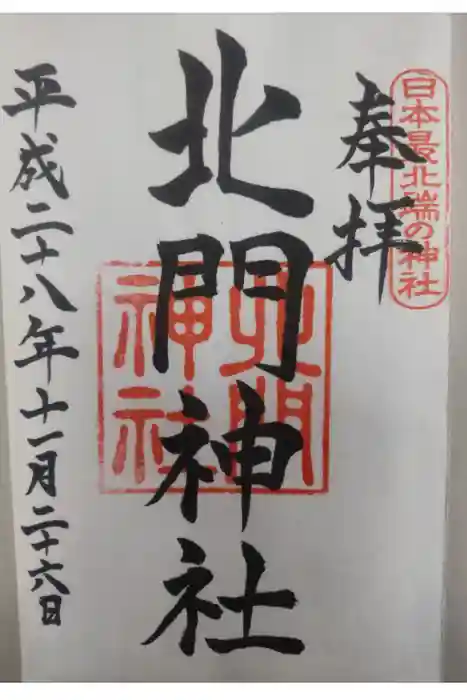 日本最北端の神社
奉拝
北門神社
北門
神社
平成二十八年十一月二十六日